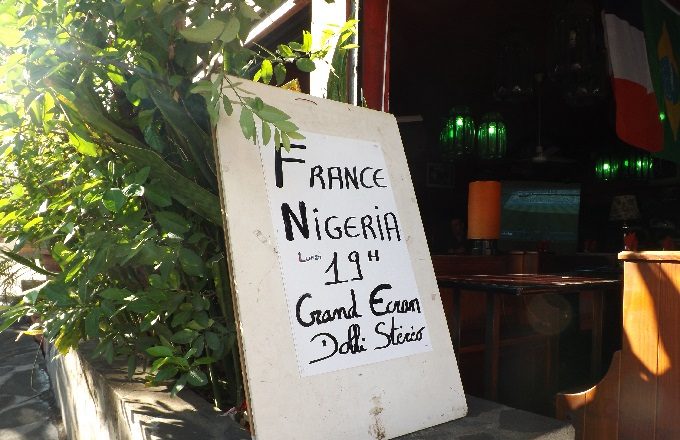 FRANCE
NIGERIA
Lundi 19H
Grand Ecran
Dolbi Stéréo